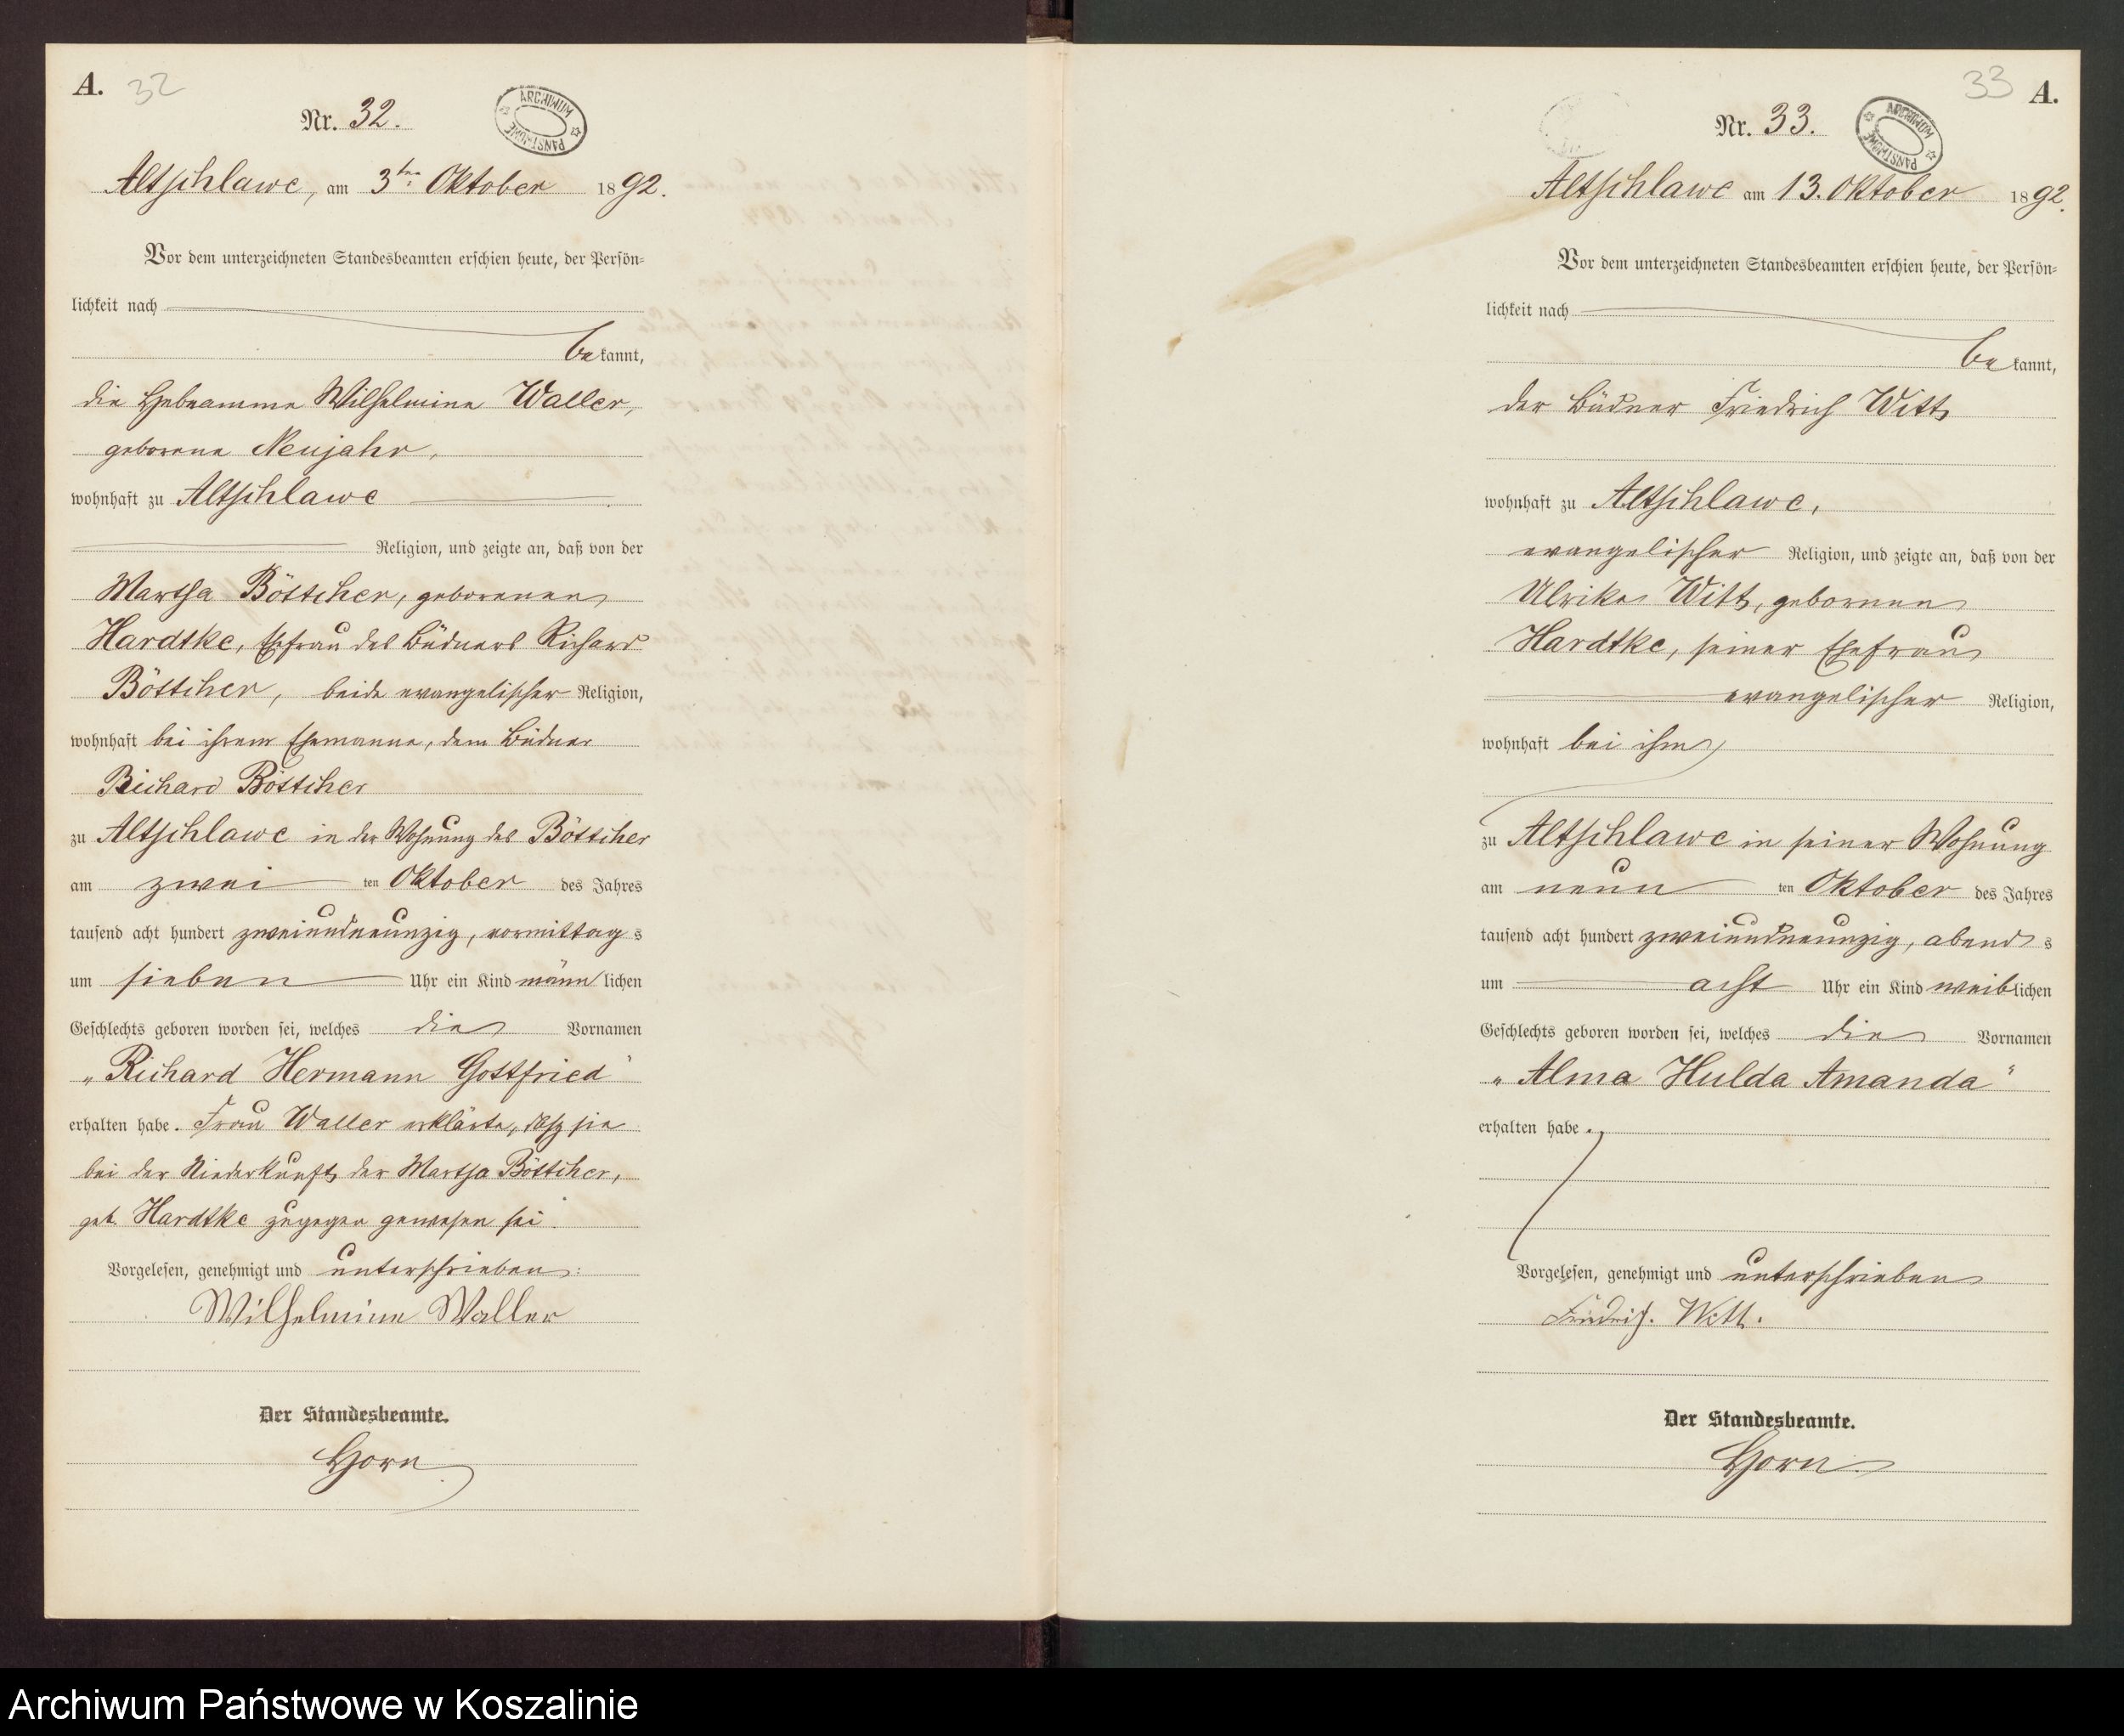 A. 32
Nr. 32.
ARCHIWUM PAŃSTWOWE
Altschlawe, am 3ten Oktober 1892.
Vor dem unterzeichneten Standesbeamten erschien heute, der Persön=
lichkeit nach
bekannt,
die Hebeamme Wilhelmine Waller,
geborene Neujahr,
wohnhaft zu Altschlawe
Religion, und zeigte an, daß von der
Martha Böttcher, geborenen
Hardtke, Ehefrau des Büdners Richard
Böttcher, beide evangelischer Religion,
wohnhaft bei ihrem Ehemanne, dem Büdner
Richard Böttcher
zu Altschlawe in der Wohnung des Böttcher
am zwei ten Oktober des Jahres
tausend acht hundert zweiundneunzig, vormittags
um sieben Uhr ein Kind männlichen
Geschlechts geboren worden sei, welches die Vornamen
„Richard Hermann Gottfried“
erhalten habe. Frau Waller erklärte, daß sie
bei der Niederkunft der Martha Böttcher,
geb. Hardtke zugegen gewesen sei.
Vorgelesen, genehmigt und unterschrieben:
Wilhelmine Waller
Der Standesbeamte.
Horn
33 A.
Nr. 33.
ARCHIWUM PAŃSTWOWE
Altschlawe am 13. Oktober 1892.
Vor dem unterzeichneten Standesbeamten erschien heute, der Persön=
lichkeit nach
bekannt,
der Büdner Friedrich Witt
wohnhaft zu Altschlawe,
evangelischer Religion, und zeigte an, daß von der
Ulrike Witt, gebornen
Hardtke, seiner Ehefrau
evangelischer Religion,
wohnhaft bei ihm
zu Altschlawe in seiner Wohnung
am neun ten Oktober des Jahres
tausend acht hundert zweiundneunzig, abends
um acht Uhr ein Kind weiblichen
Geschlechts geboren worden sei, welches die Vornamen
„Alma Hulda Amanda“
erhalten habe.
Vorgelesen, genehmigt und unterschrieben
Friedrich. Witt.
Der Standesbeamte.
Horn.
Archiwum Państwowe w Koszalinie